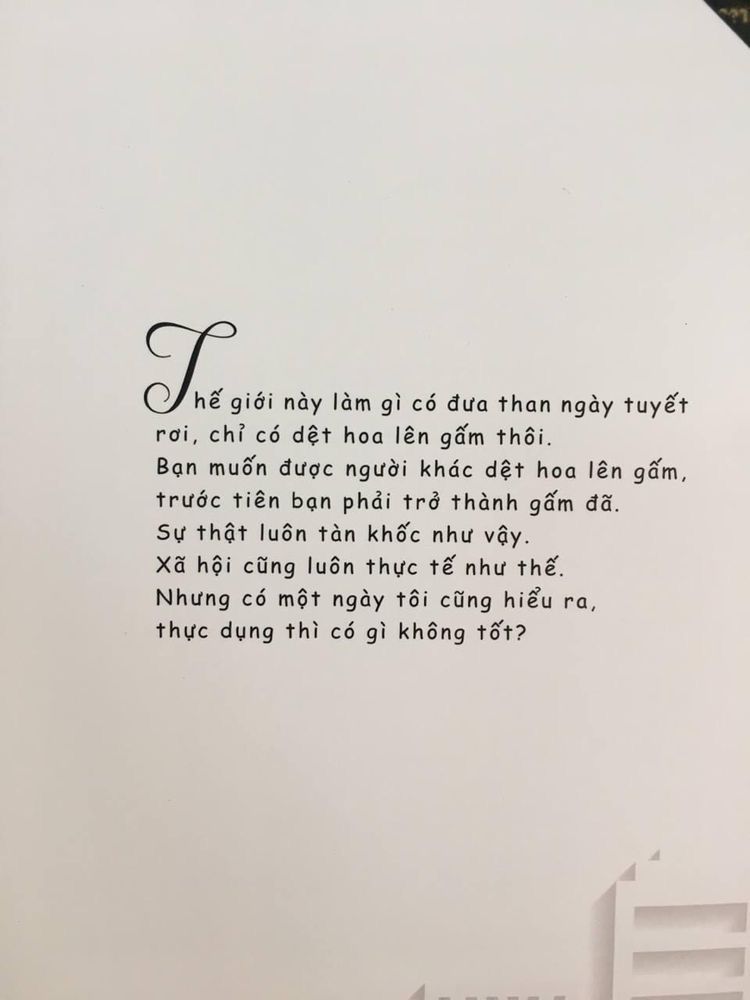 Thế giới này làm gì có đưa than ngày tuyết
rơi, chỉ có dệt hoa lên gấm thôi.
Bạn muốn được người khác dệt hoa lên gấm,
trước tiên bạn phải trở thành gấm đã.
Sự thật luôn tàn khốc như vậy.
Xã hội cũng luôn thực tế như thế.
Nhưng có một ngày tôi cũng hiểu ra,
thực dụng thì có gì không tốt?